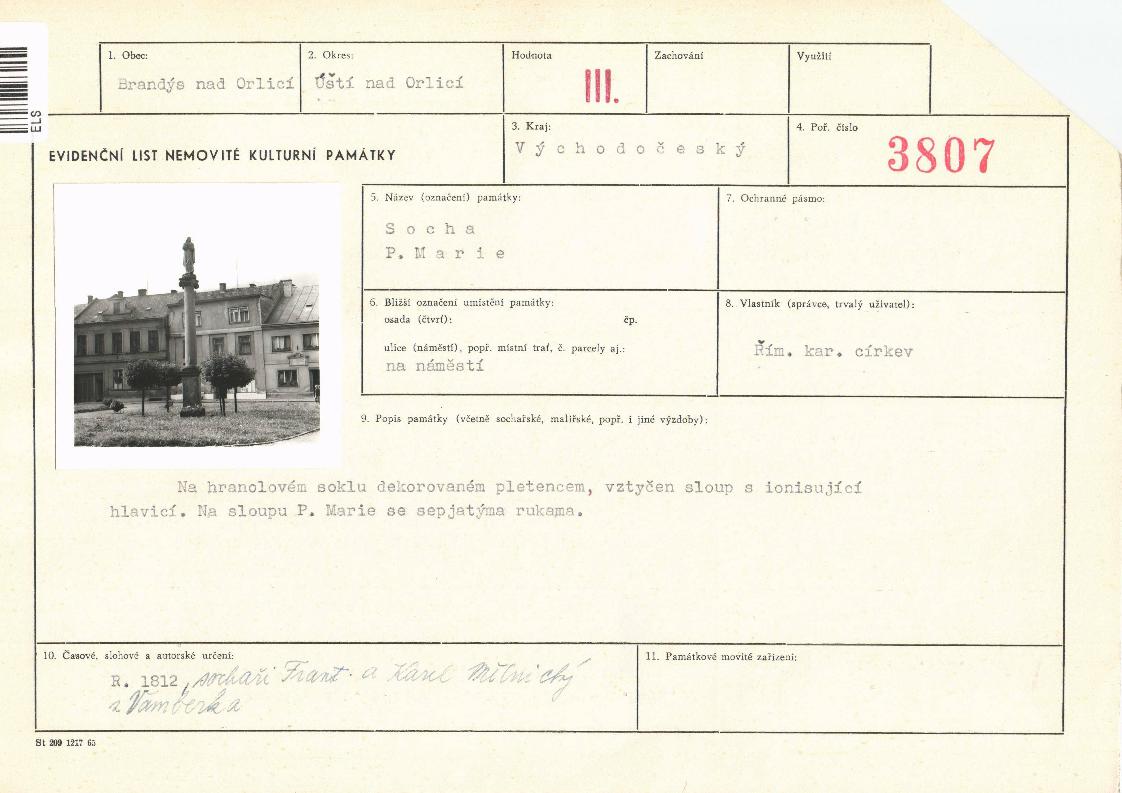 ELS
1. Obec:
Brandýs nad Orlicí
2. Okres:
Ústí nad Orlicí
Hodnota
III.
Zachování
Využití
EVIDENČNÍ LIST NEMOVITÉ KULTURNÍ PAMÁTKY
3. Kraj:
Východočeský
4. Poř. číslo
3807
5. Název (označení) památky:
Socha
P. Marie
7. Ochranné pásmo:
6. Bližší označení umístění památky:
osada (čtvrť): čp.
ulice (náměstí), popř. místní trať, č. parcely aj.:
na náměstí
8. Vlastník (správce, trvalý uživatel):
Řím. kar. církev
9. Popis památky (včetně sochařské, malířské, popř. i jiné výzdoby):
Na hranolovém soklu dekorovaném pletencem, vztyčen sloup s ionisující
hlavicí. Na sloupu P. Marie se sepjatýma rukama.
10. Časové, slohové a autorské určení:
R. 1812, sochaři Frant. a Karel Mělnický
z Vamberka
11. Památkové movité zařízení:
St 209 1217 65